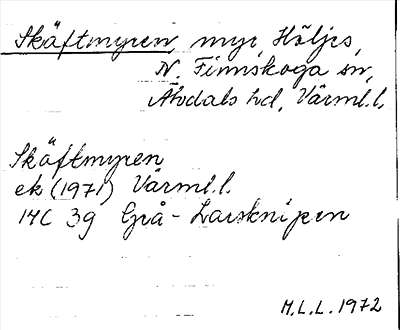 Skäftmyren, myr, Höljes,
N. Finnskoga sn,
Älvdals hd, Värml. l.
Skäftmyren
ek (1971) Värml. l.
14C 3g Grå-Larsknipen
M.L.L. 1972